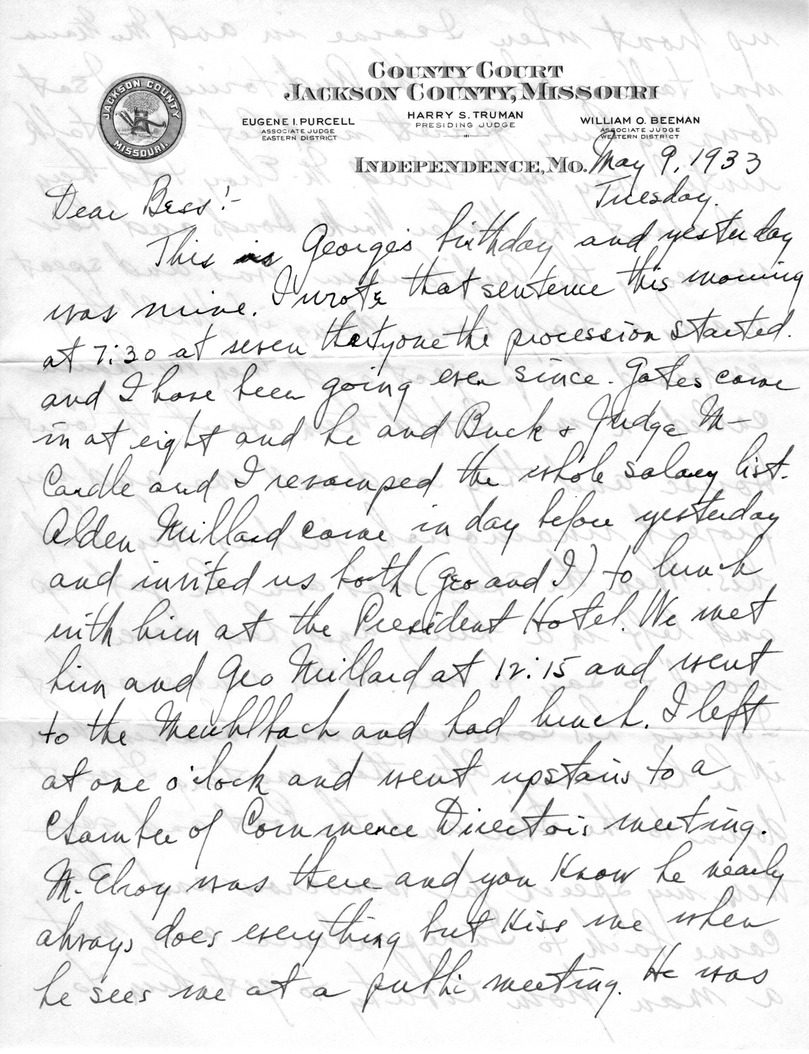 COUNTY COURT
JACKSON COUNTY, MISSOURI
JACKSON COUNTY
MISSOURI
EUGENE I. PURCELL
ASSOCIATE JUDGE
EASTERN DISTRICT
HARRY S. TRUMAN
PRESIDING JUDGE
WILLIAM O. BEEMAN
ASSOCIATE JUDGE
WESTERN DISTRICT
INDEPENDENCE, MO. May 9, 1933
Tuesday.
Dear Bess:-
This is George's birthday and yesterday
was mine. I wrote that sentence this morning
at 7:30 at seven thirty one the procession started.
and I have been going ever since. Gates came
in at eight and he and Buck & Judge M-
Cardle and I revamped the whole salary list.
Alden Millard came in day before yesterday
and invited us both (Geo and I) to lunch
with him at the President Hotel. We met
him and Geo Millard at 12:15 and went
to the Meuhlbach and had lunch. I left
at one o'clock and went upstairs to a
Chamber of Commerce Directors meeting.
M. Elroy was there and you know he nearly
always does everything but kiss me when
he sees me at a public meeting. He was